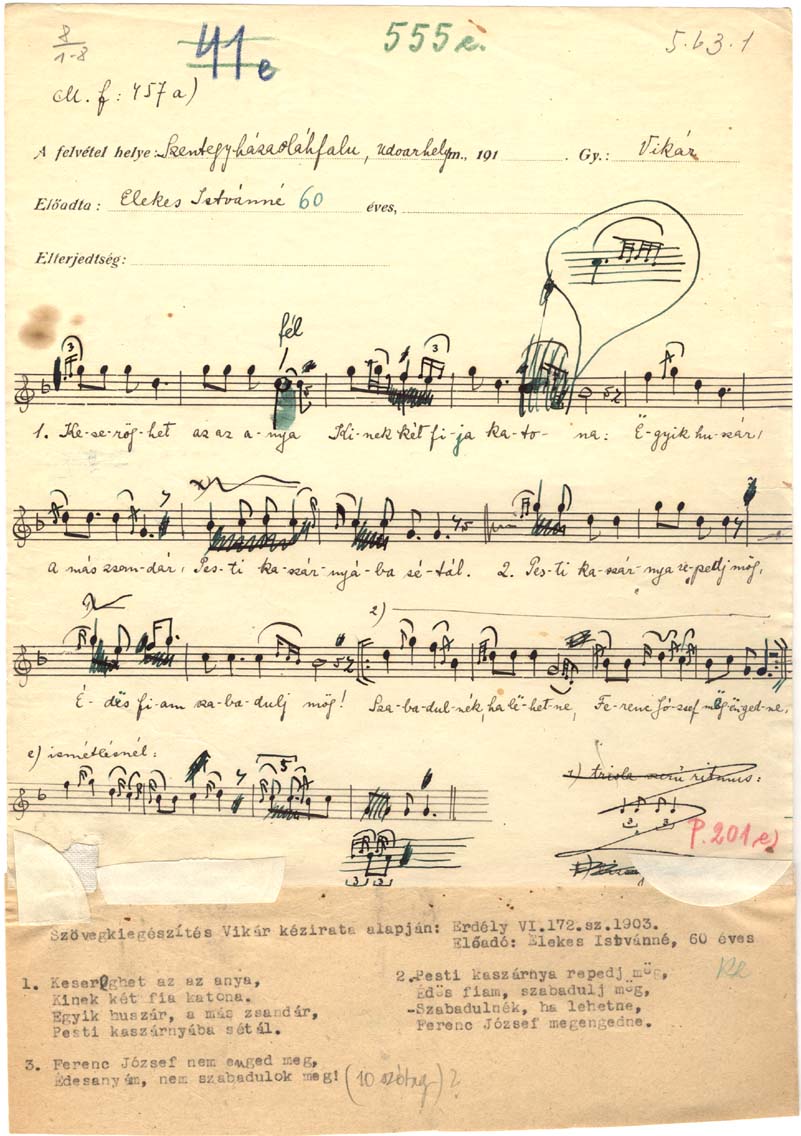 8
1-8
41e
555e.
5.63.1
M. f: 457a)
A felvétel helye: Szentegyházasoláhfalu, Udvarhely m., 191 . Gy.: Vikár
Előadta: Elekes Istvánné 60 éves,
Elterjedtség:
fél
3 3
1. Ke-se-rög-het az az a-nya Ki-nek két fi-ja ka-to-na: Ë-gyik hu-szár,
a más zsan-dár, Pes-ti ka-szár-nyá-ba sé-tál. 2. Pes-ti ka-szár-nya re-pedj mög,
2)
É-dës fi-am sza-ba-dulj mög! Sza-ba-dul-nék, ha lë-het-ne, Fe-renc Jó-zsef mëgenged-ne,
2) ismétlésnél:
5
1) triola szerű ritmus:
3 3
P. 201, e)
3 3
Szövegkiegészítés Vikár kézirata alapján: Erdély VI.172.sz.1903.
Előadó: Elekes Istvánné, 60 éves
1. Keseröghet az az anya,
Kinek két fia katona.
Egyik huszár, a más zsandár,
Pesti kaszárnyába sétál.
2. Pesti kaszárnya repedj mög,
Édös fiam, szabadulj mög,
-Szabadulnék, ha lehetne,
Ferenc József megengedne.
3. Ferenc József nem enged meg,
Édesanyám, nem szabadulok meg! (10 szótag)?